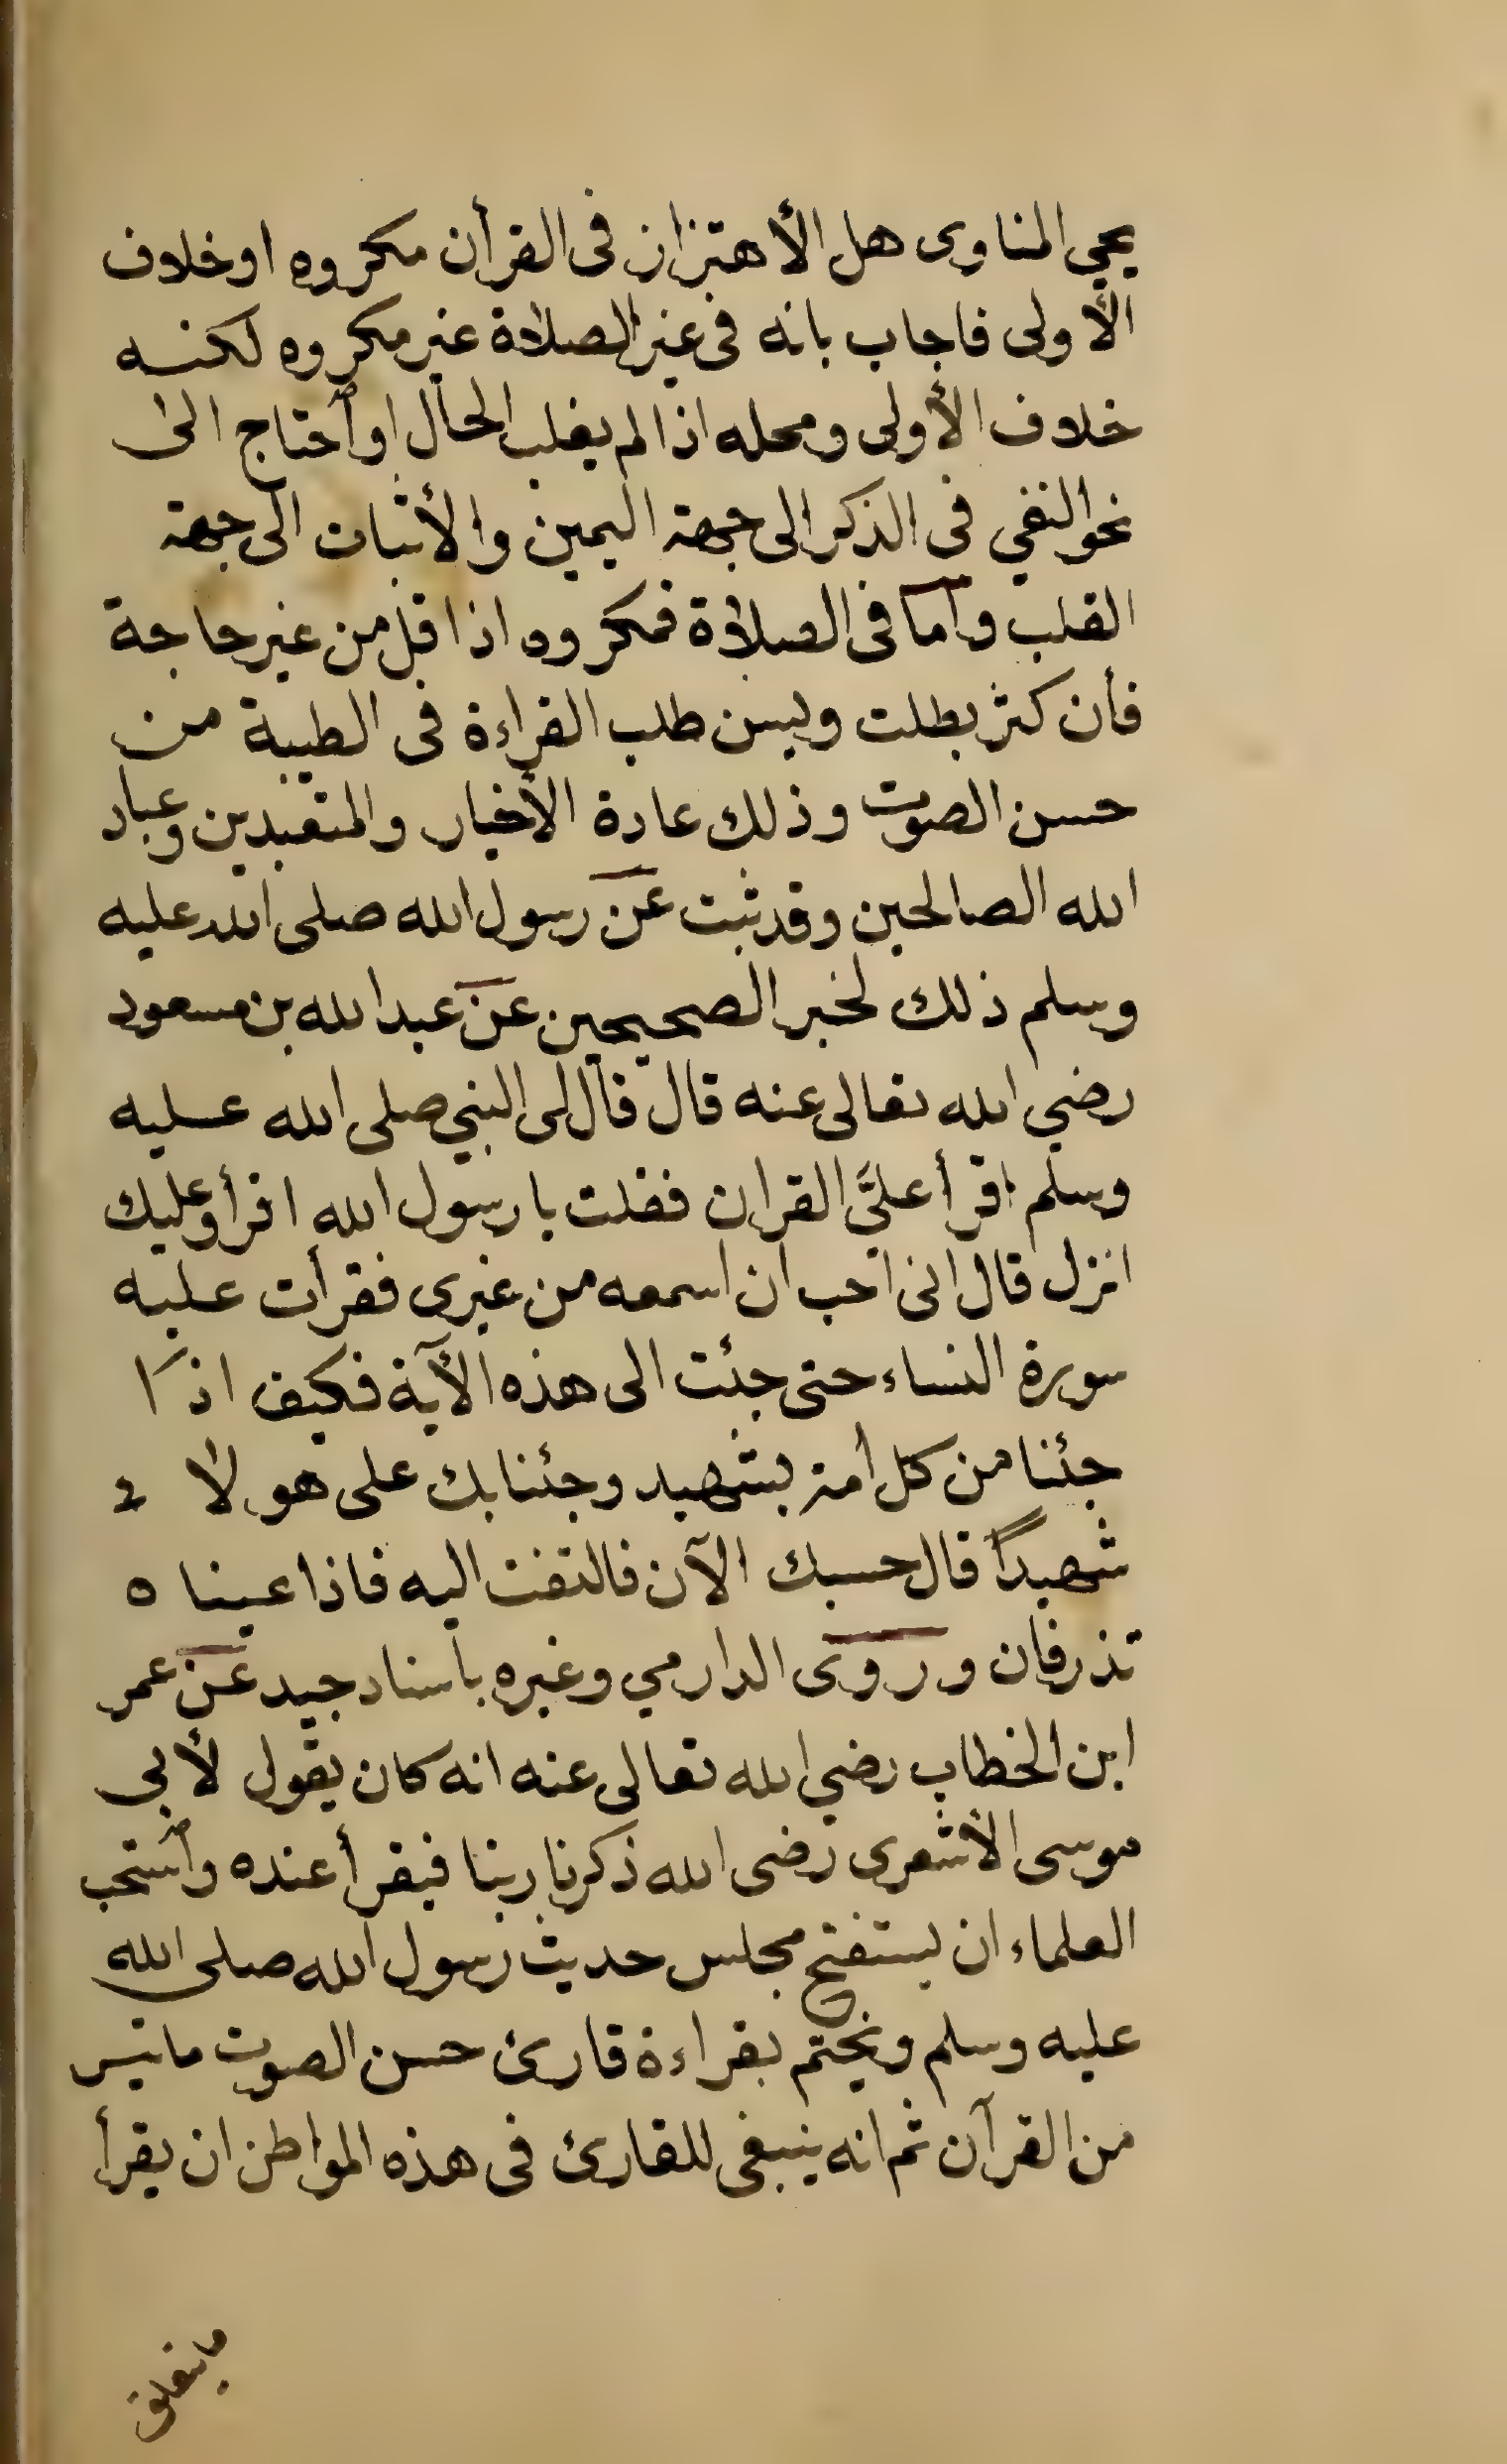 يحيى المناوى هل الأهتزاز فى القرأن مكروه او خلاف
الأولى فاجاب بانه فى غير الصلاة غير مكروه لكنه
خلاف الأولى ومحله اذا لم يغلب الحال او أحتاج الى
نحو النفي فى الذكر الى جهة اليمين والأثبات الى جهة
القلب وأما فى الصلاة فمكروه اذا قل من غير حاجة
فأن كثر بطلت ويسن طلب القراءة فى الطيبة من
حسن الصوت وذلك عادة الأخيار والمتعبدين وعباد
الله الصالحين وقد ثبت عن رسول الله صلى الله عليه
وسلم ذلك لخبر الصحيحين عن عبد الله بن مسعود
رضي الله تعالى عنه قال قال لى النبي صلى الله عليه
وسلم اقرأ عليَّ القران فقلت يا رسول الله اقرأ وعليك
انزل قال انى احب ان اسمعه من غيرى فقرأت عليه
سورة النساء حتى جئت الى هذه الآية فكيف اذا
جئنا من كل أمة بشهيد وجئنا بك على هولاء
شهيداً قال حسبك الآن فالتفت اليه فاذا عيناه
تذرفان وروى الدارمي وغيره بأسناد جيد عن عمر
ابن الخطاب رضي الله تعالى عنه انه كان يقول لأبي
موسى الأشعرى رضى الله ذكرنا ربنا فيقرأ عنده وأستحب
العلماء ان يستفتح مجلس حديث رسول الله صلى الله
عليه وسلم ويختم بقراءة قارئ حسن الصوت ما تيسر
من القرآن ثم انه ينبغى للقارئ فى هذه المواطن ان يقرأ
ما يتعلق